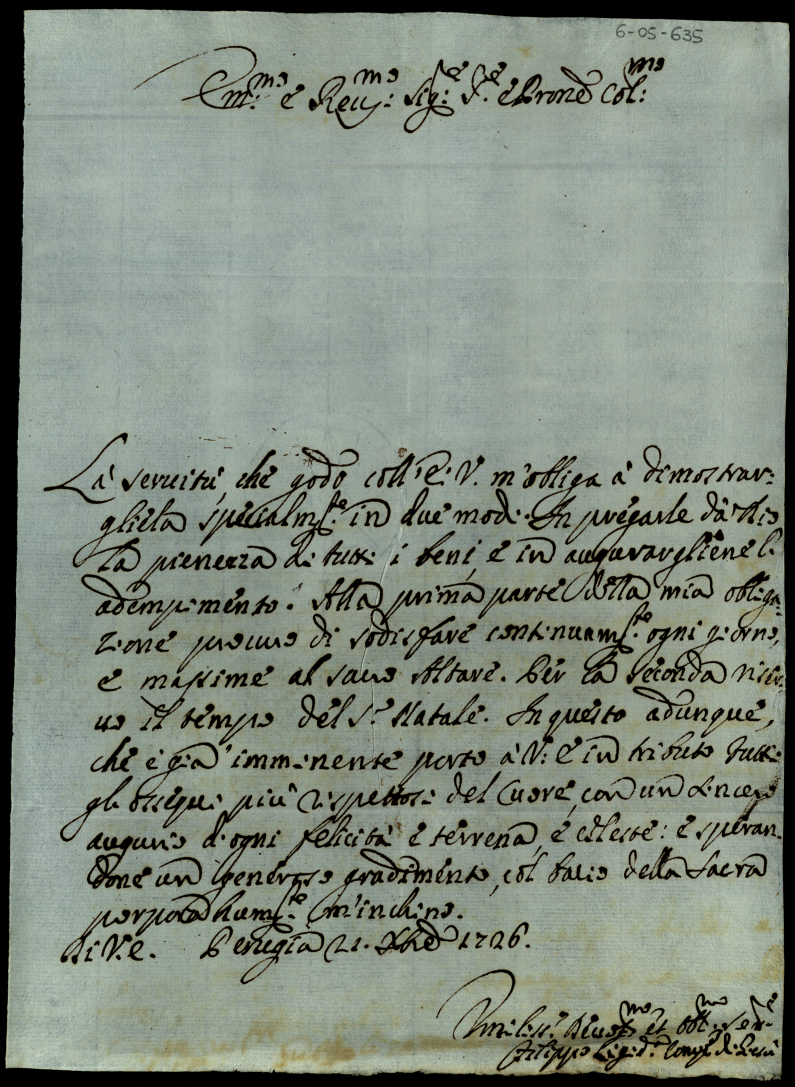 6-05-635
Em.mo e Rev.mo Sig.e S.e e Prone Col.mo
La servitù, che godo coll' E: V. m'obliga à dimostrar=
gliela specialm.te in due modi. In pregarle da Dio
la pienezza di tutti i beni, e in augurargliene l'
adempimento. Alla prima parte della mia obliga=
zione procuro di sodisfare continuam.te ogni giorno,
e massime al sacro Altare. Per la seconda riser=
vo il tempo del S.o Natale. In questo adunque,
che è già imminente porto à V: E in tributo tutti
gli ossequi più rispettosi del Cuore, con un sincero
augurio d'ogni felicità e terrena, e celeste: e speran=
done un generoso gradimento, col bacio della Sacra
porpora humil.te m'inchino.
Di V. E. Perugia 21. Xbre 1726.
Umiliss.o Devot.mo et Obl.mo Ser.e
Filippo